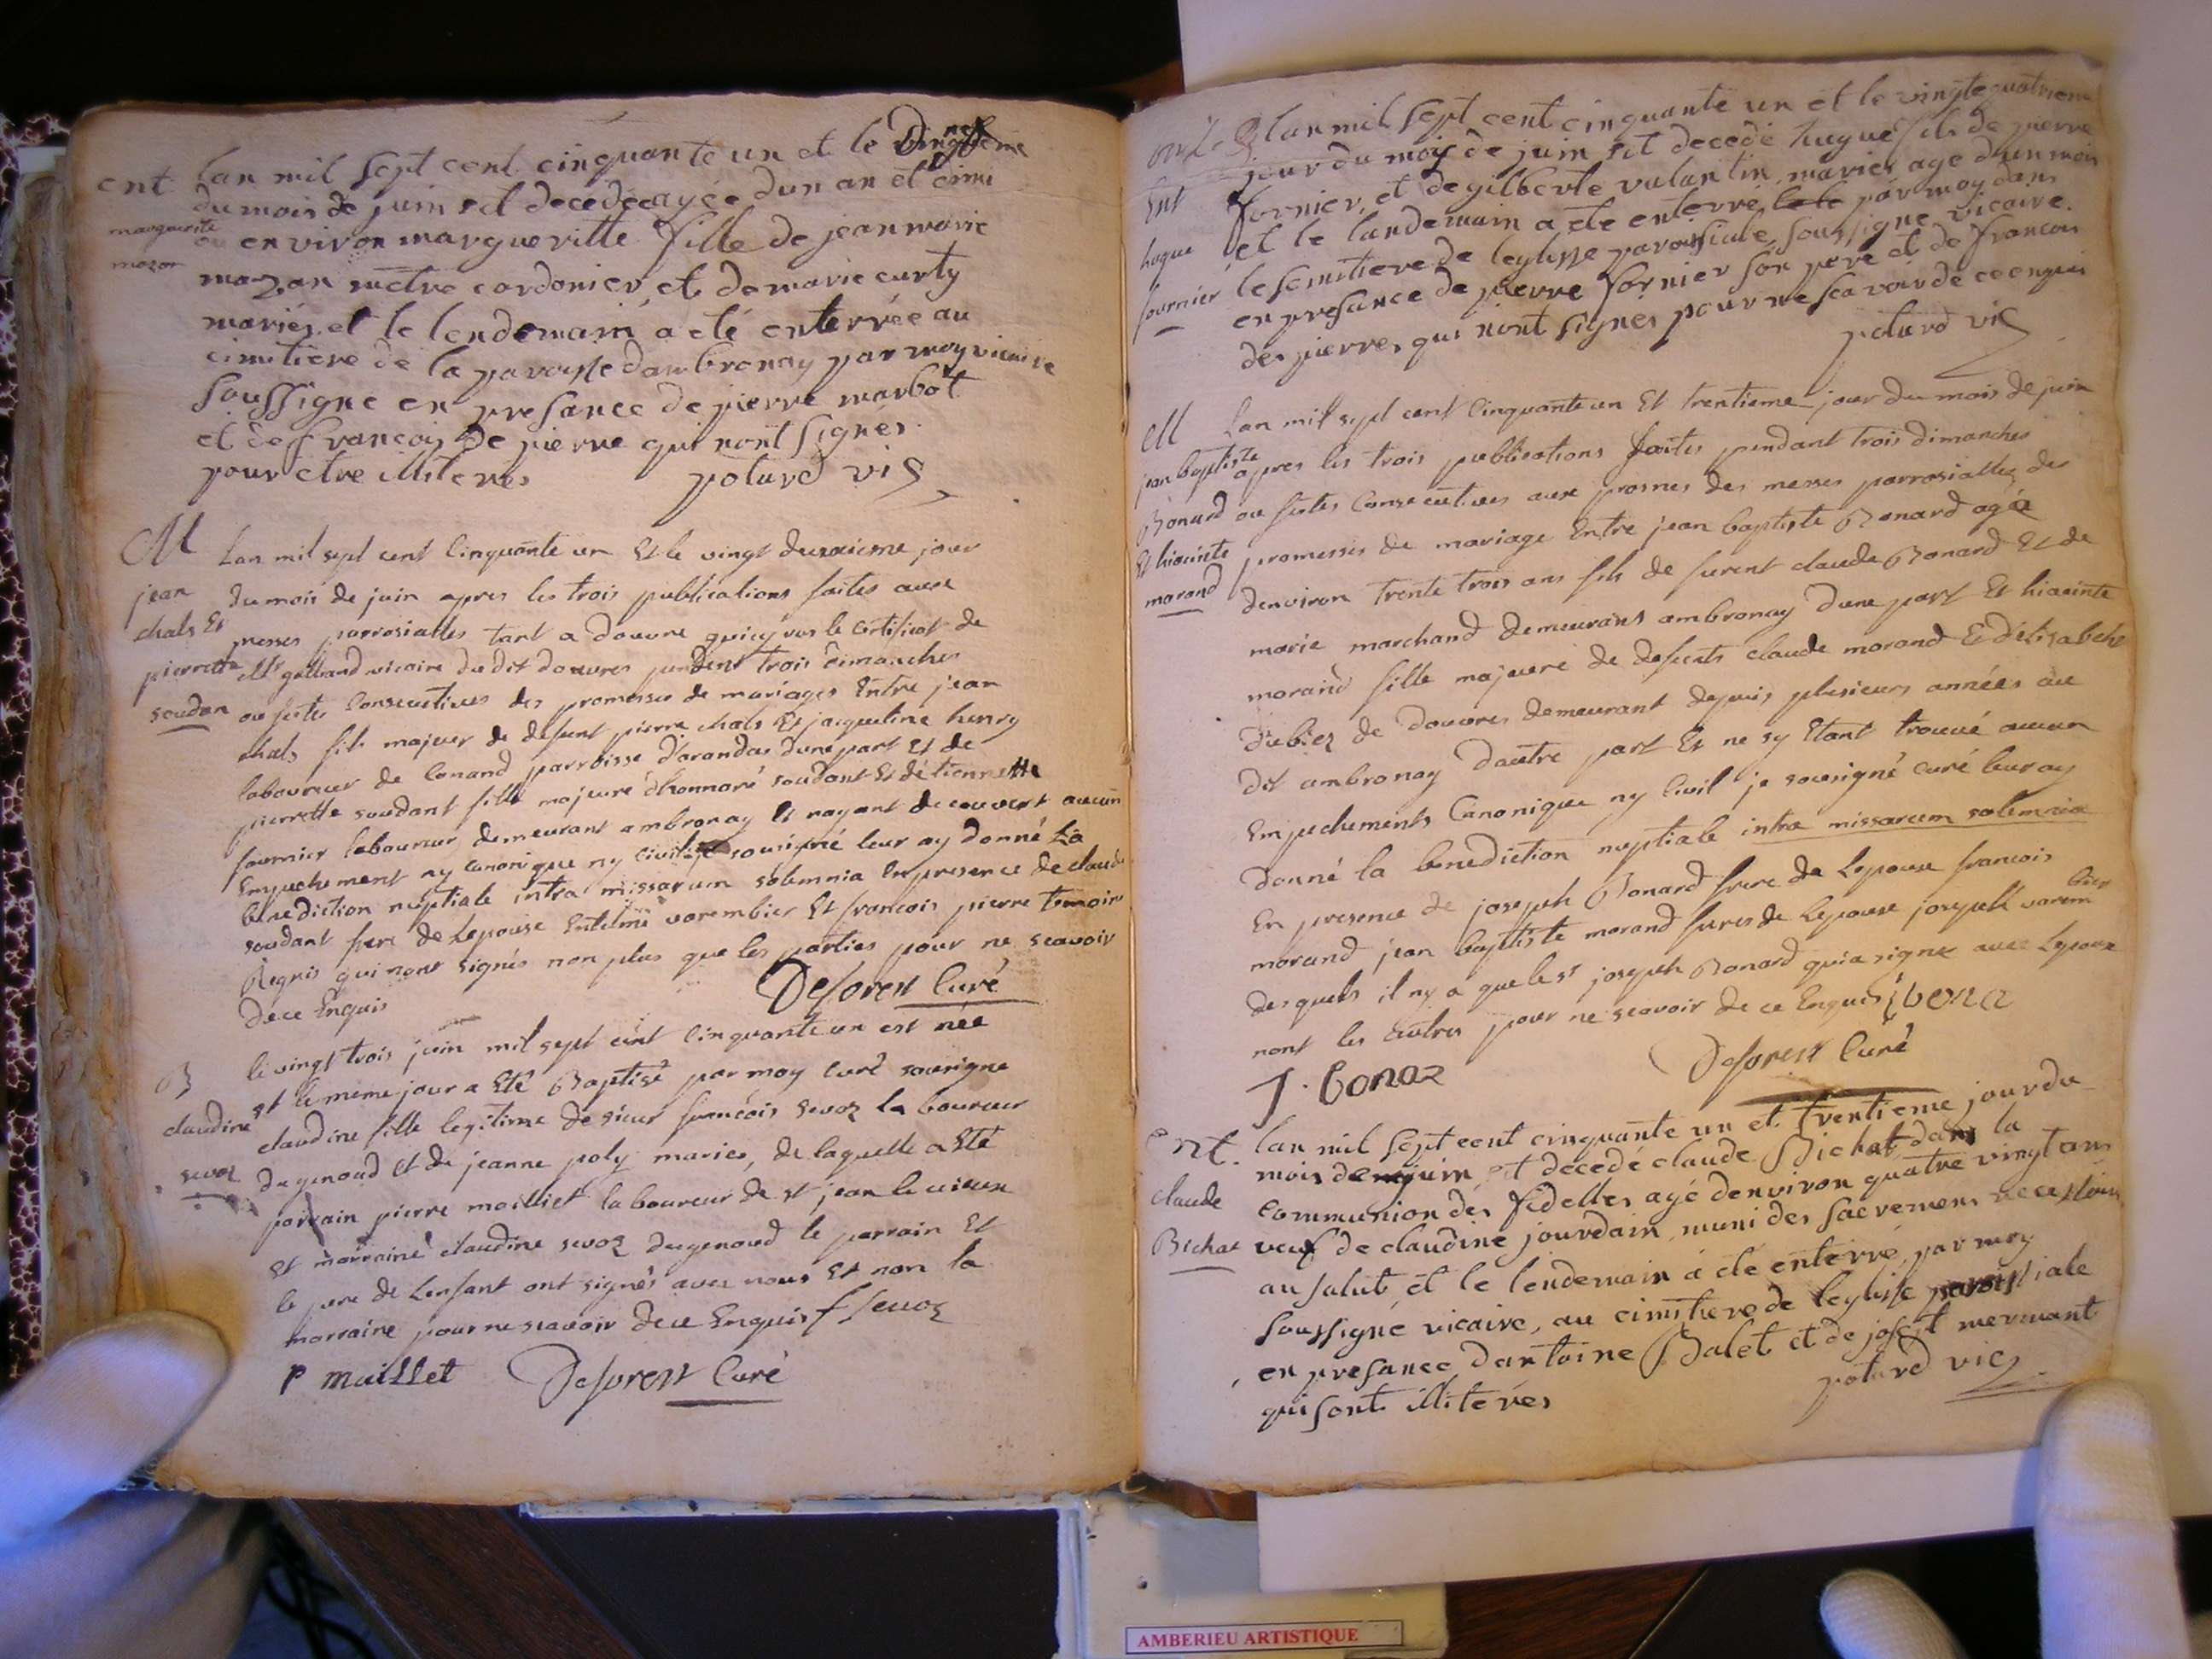 ent lan mil sept cent cinquante un et le vingtieme
du mois de juin est decedée ayée dun an et demi
marguerite ou environ margueritte fille de jean marie
mazan metre cordonier, et de marie curty
mariés, et le lendemain a eté enterrée au
cimitiere de la paroisse dambronay par moy vicaire
soussigne en presance de pierre marbot
et de francois de pierre qui nont signés
pour etre illiteres polard vic
M Lan mil sept cent Cinquante un Et le vingt deuxieme jour
jean du mois de juin apres les trois publications faites aux
chals Et messes parroisialles tant a douvre quicy vus le Certificat de
pierrette Mr galland vicaire du dit douvres pendent trois dimanches
soudan ou festes Consecutives des promesses de mariages Entre jean
chals fils majeur de defunt pierre chals Et jacqueline henry
laboureur de Conand parroisse darandas dune part Et de
pierrette soudant fille majeure dhonnoré soudant Et détiennette
fournier laboureur demeurant ambronay Et nayant decouvert aucun
Empechement ny canonique ny civil je sousigné leur ay donné La
benediction nuptiale intra missarum solemnia En presence de claude
soudant frere de Lepouse Entelme varembier Et francois pierre temoins
Requis qui nont signés non plus que les parties pour ne scavoir
de ce Enquis Deforest Curé
B le vingt trois juin mil sept cent Cinquante un est née
et le meme jour a Eté Baptisé par moy Curé sousigne
claudine claudine fille legitime de sieur francois sevoz laboureur
sevoz dugenoud et de jeanne poly mariés, de laquelle a Eté
parrain pierre mailliet laboureur de st jean le vieux
Et marraine claudine sevoz dugenoud le parrain Et
le pere de Lenfant ont signés avec nous Et non la
marraine pour ne scavoir de ce Enquis f sevoz
P maillet Deforest Curé
lan mil sept cent cinquante un et le vingte quatrieme
jour du moy de juin est decedé hugue fils de pierre
Ent fornier, et de gilberte valantin, mariés age d'un mois
et le landemain a ete enterré par moy dans
hugue le semitiere de leglisse paroissiale, soussigne vicaire.
fournier en presance de pierre fornier son pere et de francois
de pierre, qui nont signes pour ne scavoir de ce enquis
polard vic
M Lan mil sept cent Cinquante un Et trentieme jour du mois de juin
jean baptiste apres les trois publications faites pendant trois dimanches
Bonard ou festes Consecutives aux prosnes des messes parrosialles des
Et hiacinte promesses de mariage Entre jean baptiste Bonard agée
morand denviron trente trois ans fils de furent claude Bonard Et de
marie marchand demeurans ambronay dune part Et hiacinte
morand fille majeure de defunts claude morand Et d'elisabeht
dubiez de douvres demeurant depuis plusieurs années au
dit ambronay dautre part Et ne sy Etant trouvé aucun
Empechements Canonique ny Civil je sousigné curé leur ay
donné la benediction nuptiale intra missarum solemnia
En presence de joseph Bonard frere de Lepoux francois
morand jean baptiste morand freres de Lepouse joseph varembier
desquels il ny a que le sr joseph Bonard qui a signe avec Lepoux
nont les autres pour ne scavoir de ce Enquis
J. bonaz Deforest Curé
Ent. lan mil sept cent cinquante un et trentieme jour du
mois de juin est decedé claude Bichat dans la
claude communion des fidelles ayé denviron quatre vingt ans
Bichat veuf de claudine jourdain, muni des sacremens necessaires
au salut, et le lendemain a été enterré, par moy
soussigné vicaire, au cimitiere de leglisse paroissiale
en presance dantoine Balet et de josept mermant
qui sont illiterés polard vic
AMBERIEU ARTISTIQUE